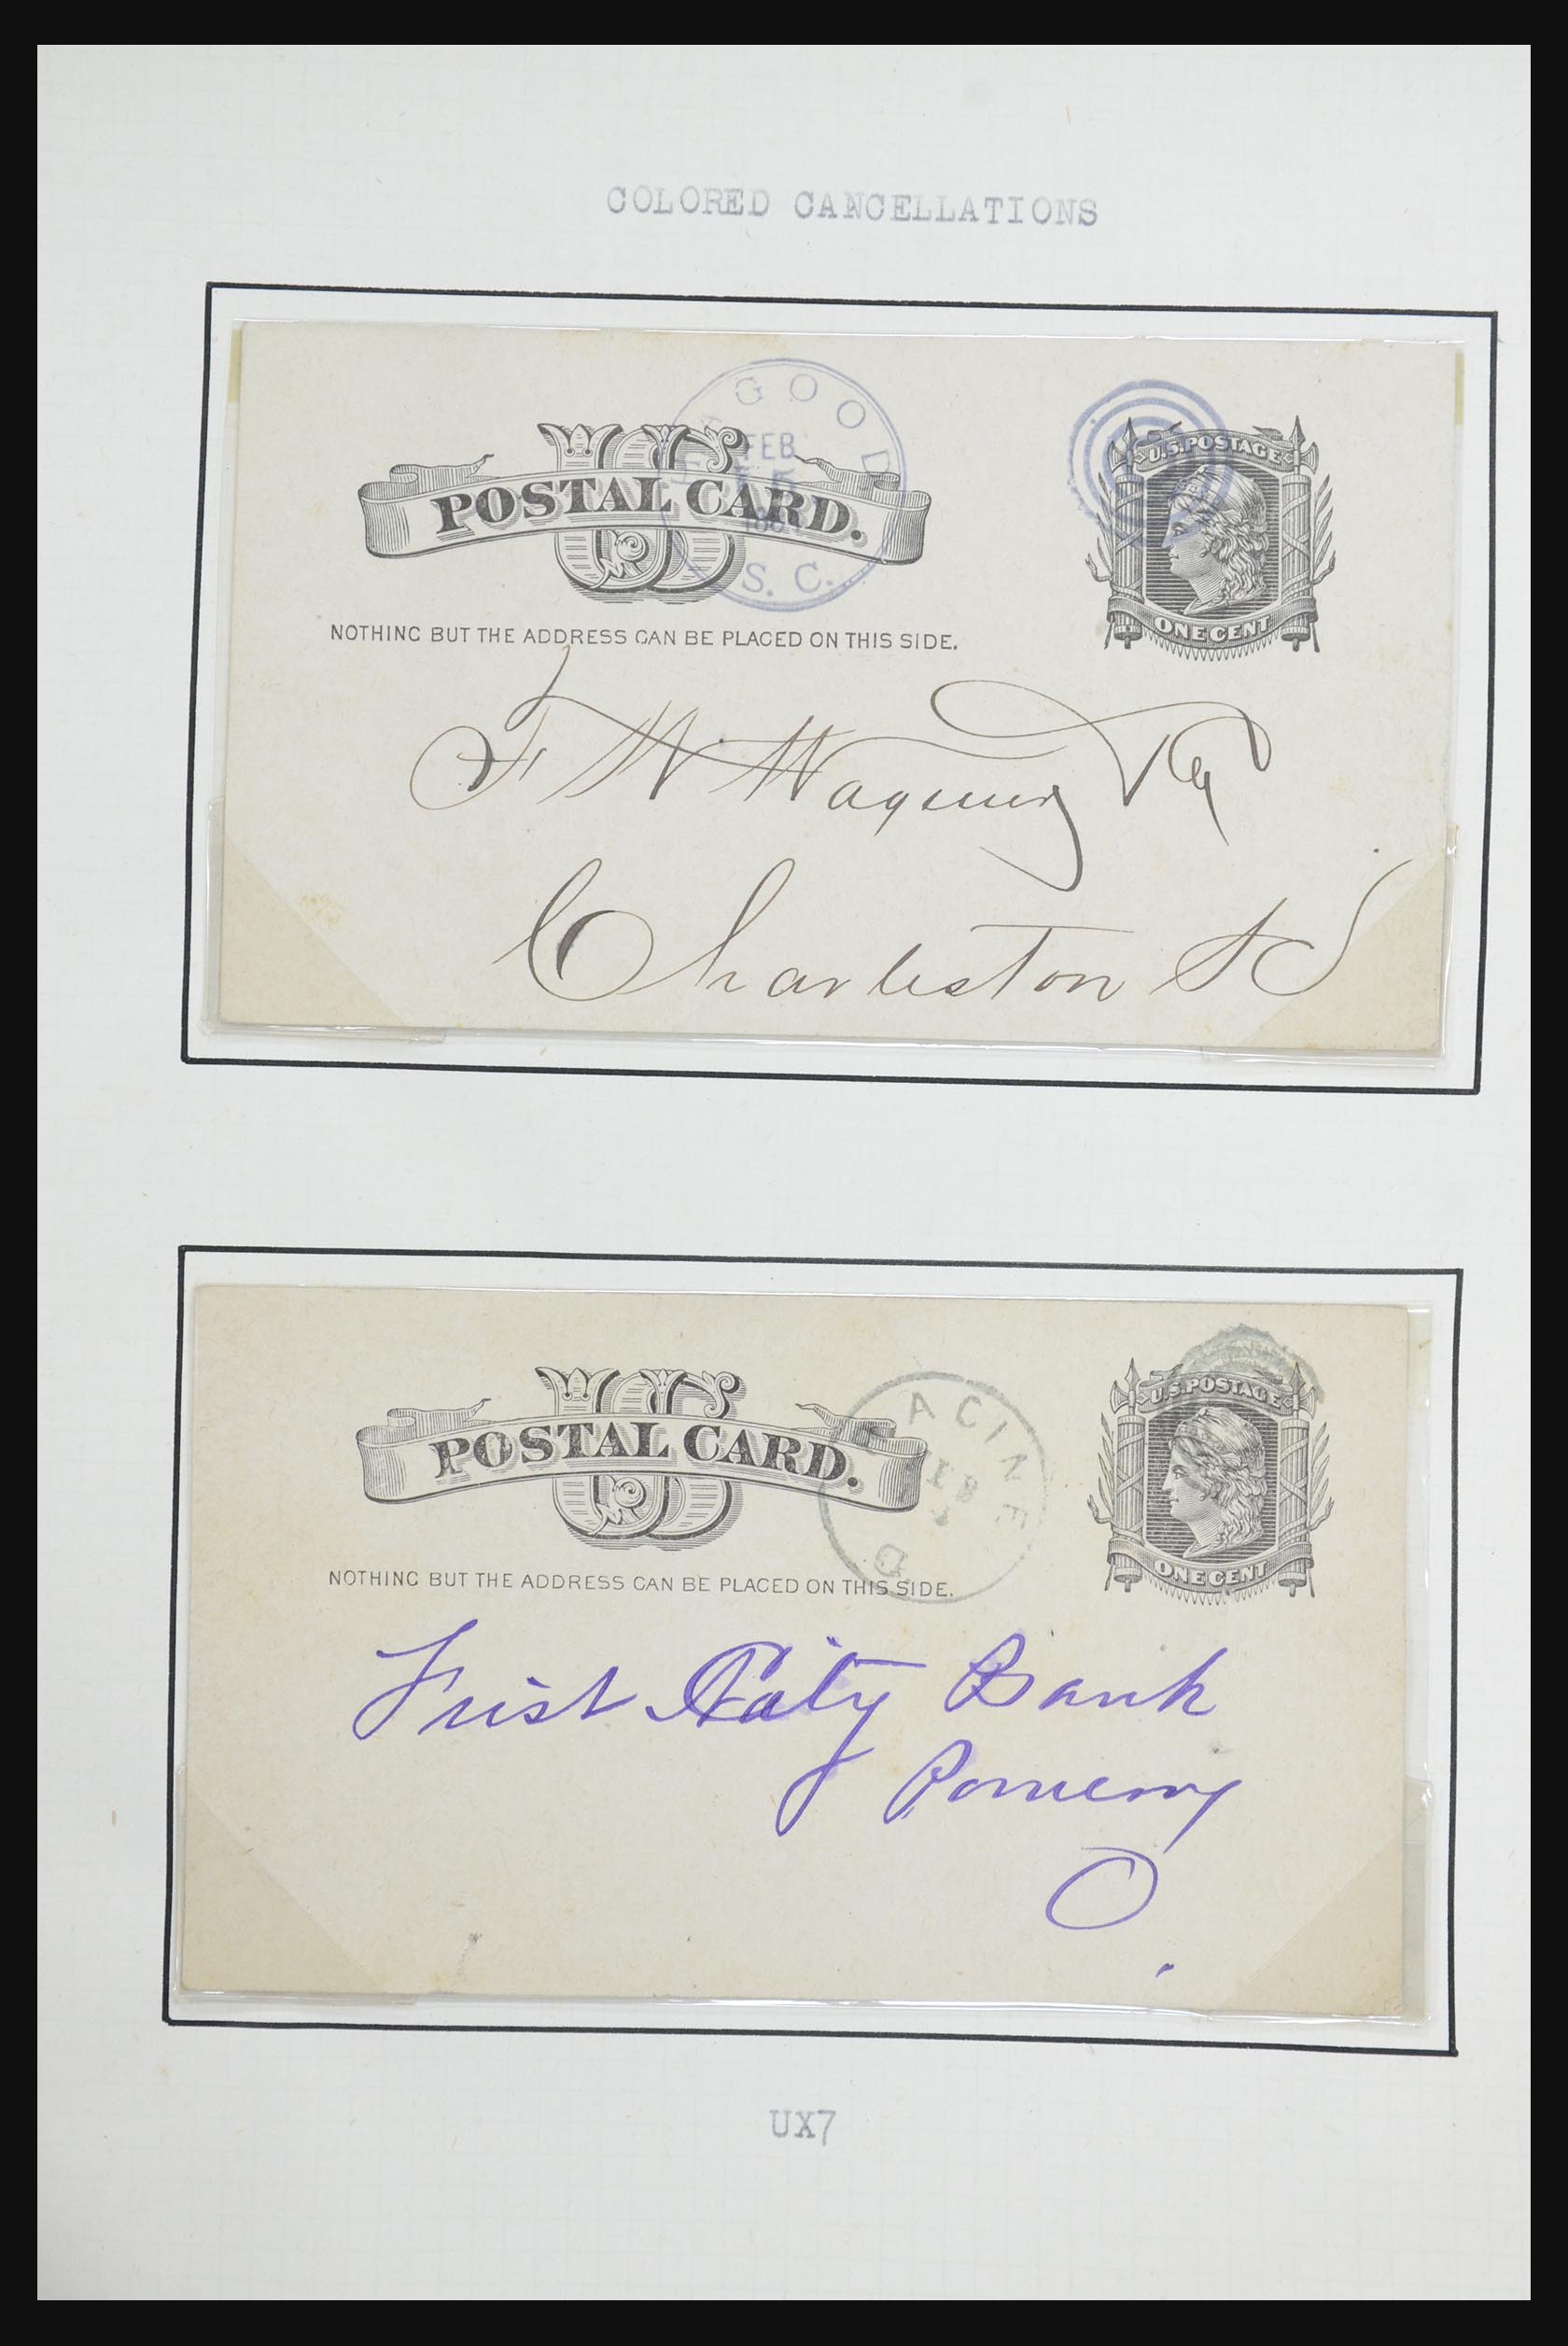 COLORED CANCELLATIONS
GOOD
FEB
15
S. C.
US
POSTAL CARD.
U.S. POSTAGE
ONE CENT
NOTHING BUT THE ADDRESS CAN BE PLACED ON THIS SIDE.
F W Wagener
Charleston S C
ACINE
FEB
O
US
POSTAL CARD.
U.S. POSTAGE
ONE CENT
NOTHING BUT THE ADDRESS CAN BE PLACED ON THIS SIDE.
First City Bank
Pomeroy
O.
UX7